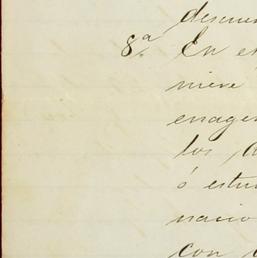 descuen
8ª En es
nieve
enagen
los
ó estu
nacio
con